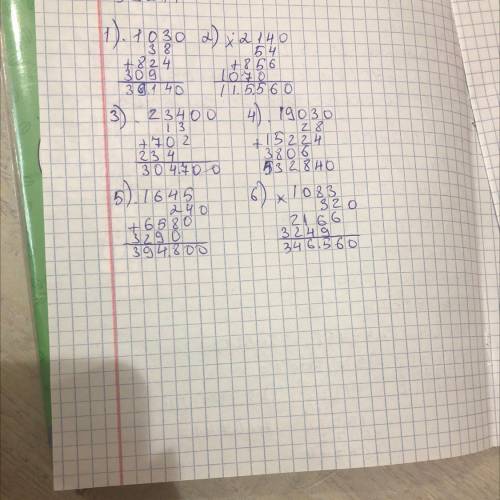 1) . 1030 2) × 2140
38 54
+ 824 + 856
309 1070
39140 115560
3) . 23400 4) . 19030
13 28
+ 702 + 15224
234 3806
304.700 532840
5) . 1645 6) × 1083
240 320
+ 6580 2166
3290 3249
394.800 346.560